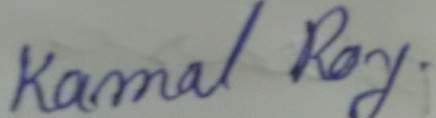 Kamal Roy.